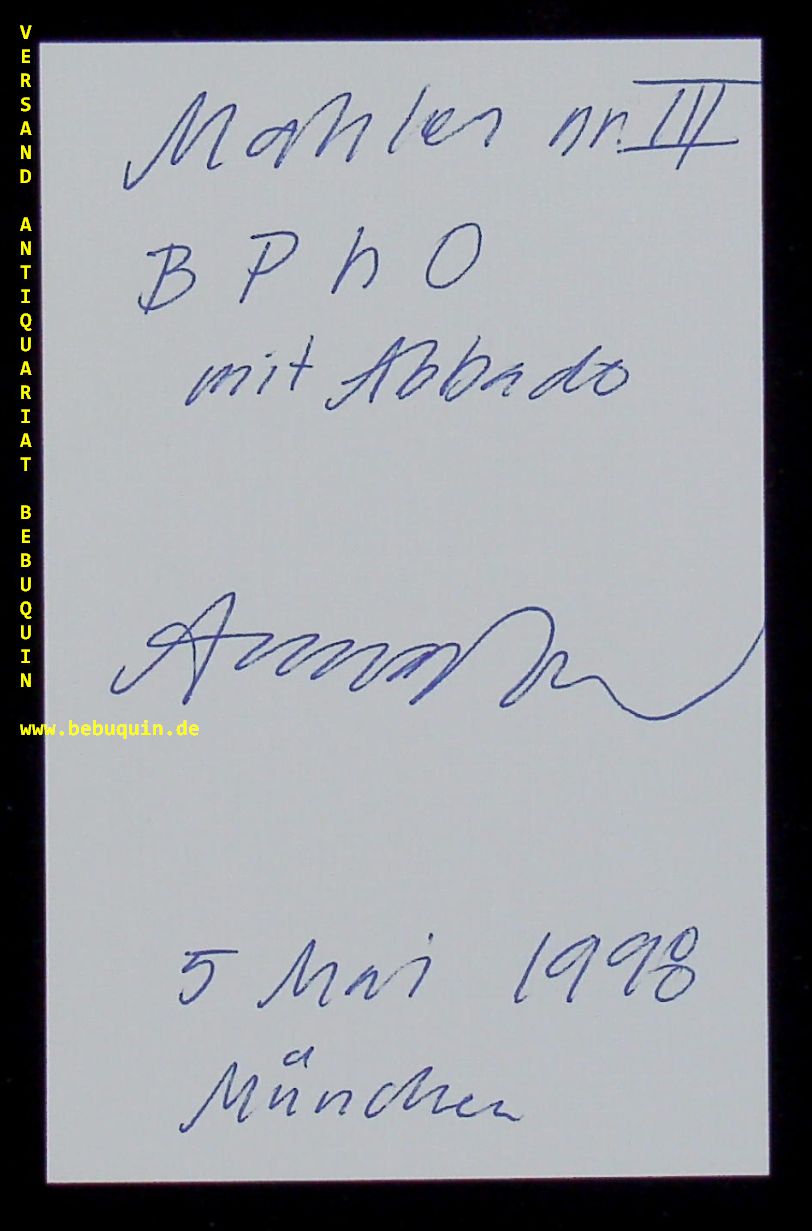 VERSAND ANTIQUARIAT BEBUQUIN
www.bebuquin.de
Mahler nr. III
B P h O
mit Abbado
5 Mai 1998
München